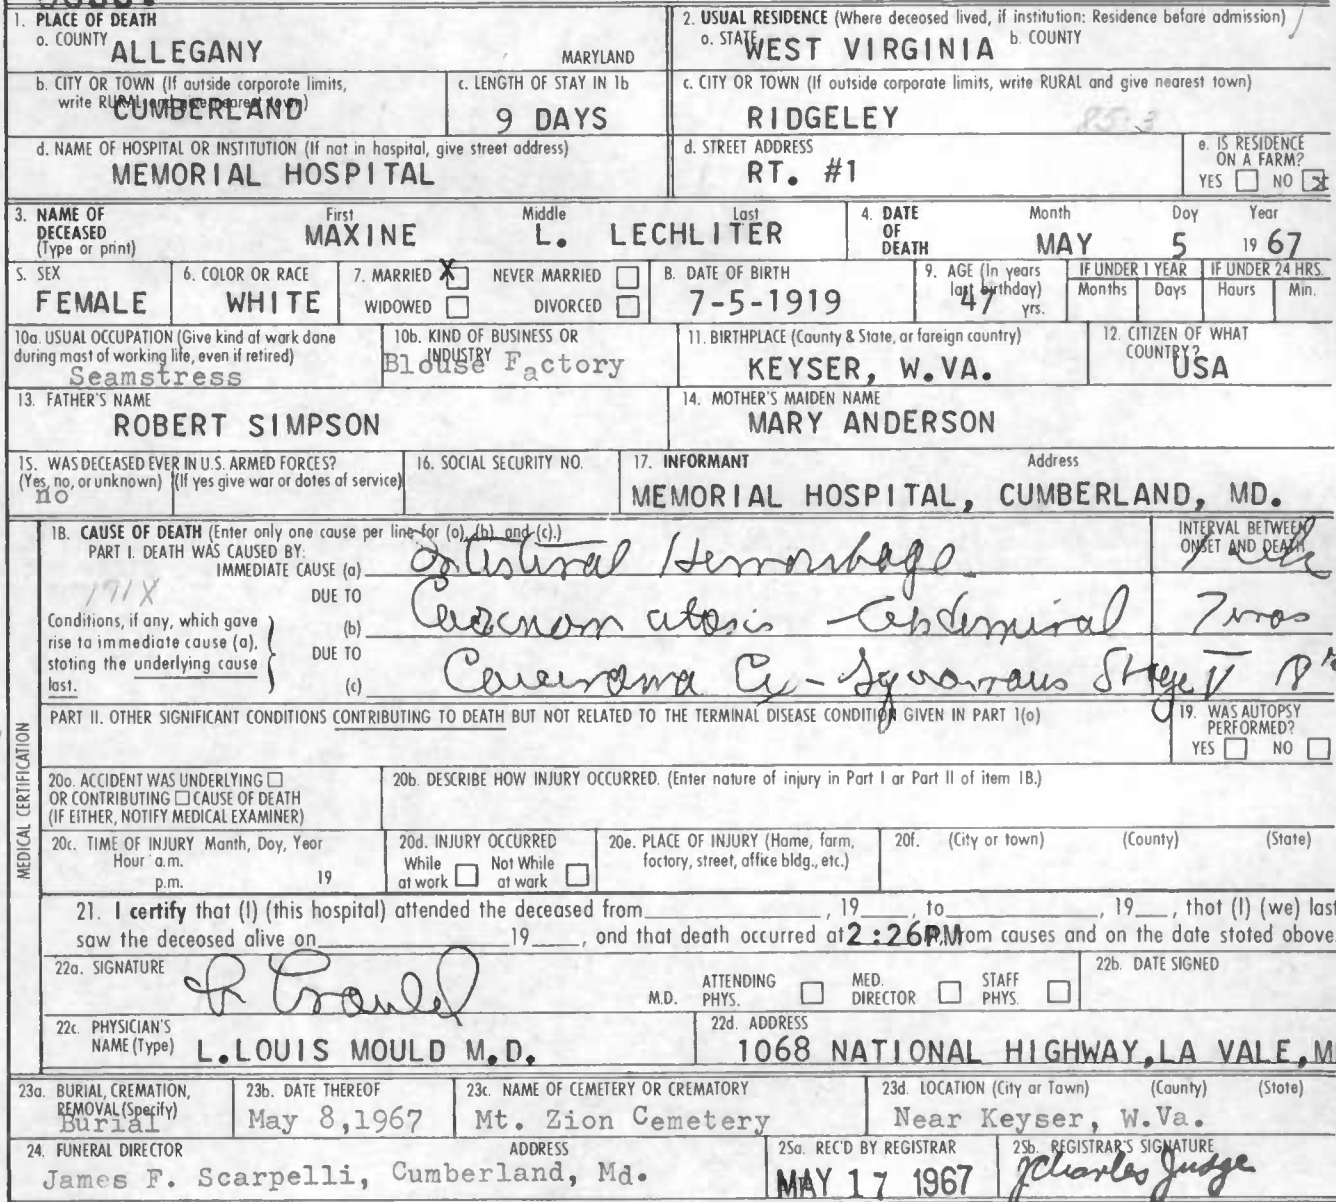 1. PLACE OF DEATH
a. COUNTY ALLEGANY MARYLAND
2. USUAL RESIDENCE (Where deceased lived, if institution: Residence before admission)
a. STATE WEST VIRGINIA b. COUNTY
b. CITY OR TOWN (If outside corporate limits, write RURAL and give nearest town)
CUMBERLAND
c. LENGTH OF STAY IN 1b
9 DAYS
c. CITY OR TOWN (If outside corporate limits, write RURAL and give nearest town)
RIDGELEY 85-3
d. NAME OF HOSPITAL OR INSTITUTION (If not in hospital, give street address)
MEMORIAL HOSPITAL
d. STREET ADDRESS
RT. #1
e. IS RESIDENCE ON A FARM?
YES NO X
3. NAME OF DECEASED (Type or print)
First Middle Last
MAXINE L. LECHLITER
4. DATE OF DEATH
Month Day Year
MAY 5 1967
5. SEX
FEMALE
6. COLOR OR RACE
WHITE
7. MARRIED X NEVER MARRIED
WIDOWED DIVORCED
8. DATE OF BIRTH
7-5-1919
9. AGE (In years last birthday)
47 yrs.
IF UNDER 1 YEAR
Months Days
IF UNDER 24 HRS.
Hours Min.
10a. USUAL OCCUPATION (Give kind of work done during most of working life, even if retired)
Seamstress
10b. KIND OF BUSINESS OR INDUSTRY
Blouse Factory
11. BIRTHPLACE (County & State, or foreign country)
KEYSER, W.VA.
12. CITIZEN OF WHAT COUNTRY?
USA
13. FATHER'S NAME
ROBERT SIMPSON
14. MOTHER'S MAIDEN NAME
MARY ANDERSON
15. WAS DECEASED EVER IN U.S. ARMED FORCES?
(Yes, no, or unknown) (If yes give war or dates of service)
no
16. SOCIAL SECURITY NO.
17. INFORMANT Address
MEMORIAL HOSPITAL, CUMBERLAND, MD.
MEDICAL CERTIFICATION
18. CAUSE OF DEATH (Enter only one cause per line for (a), (b), and (c).)
PART I. DEATH WAS CAUSED BY:
IMMEDIATE CAUSE (a) Intestinal Hemorrhage
INTERVAL BETWEEN ONSET AND DEATH
171X
Conditions, if any, which gave rise to immediate cause (a), stating the underlying cause last.
DUE TO
(b) Carcinomatosis - Abdominal 7 mos
DUE TO
(c) Carcinoma Cx - Squamous Stage 18
PART II. OTHER SIGNIFICANT CONDITIONS CONTRIBUTING TO DEATH BUT NOT RELATED TO THE TERMINAL DISEASE CONDITION GIVEN IN PART 1(a)
19. WAS AUTOPSY PERFORMED?
YES NO
20a. ACCIDENT WAS UNDERLYING
OR CONTRIBUTING CAUSE OF DEATH
(IF EITHER, NOTIFY MEDICAL EXAMINER)
20b. DESCRIBE HOW INJURY OCCURRED. (Enter nature of injury in Part I or Part II of item 18.)
20c. TIME OF INJURY Month, Day, Year
Hour a.m.
p.m. 19
20d. INJURY OCCURRED
While at work Not While at work
20e. PLACE OF INJURY (Home, farm, factory, street, office bldg., etc.)
20f. (City or town) (County) (State)
21. I certify that (I) (this hospital) attended the deceased from , 19 , to , 19 , that (I) (we) last
saw the deceased alive on 19 , and that death occurred at 2:26PM from causes and on the date stated above.
22a. SIGNATURE
M.D. ATTENDING PHYS. MED. DIRECTOR STAFF PHYS.
22b. DATE SIGNED
22c. PHYSICIAN'S NAME (Type) L.LOUIS MOULD M.D.
22d. ADDRESS
1068 NATIONAL HIGHWAY, LA VALE, M
23a. BURIAL, CREMATION, REMOVAL (Specify)
Burial
23b. DATE THEREOF
May 8,1967
23c. NAME OF CEMETERY OR CREMATORY
Mt. Zion Cemetery
23d. LOCATION (City or Town) (County) (State)
Near Keyser, W.Va.
24. FUNERAL DIRECTOR ADDRESS
James F. Scarpelli, Cumberland, Md.
25a. REC'D BY REGISTRAR
MAY 17 1967
25b. REGISTRAR'S SIGNATURE
J Charles Judge